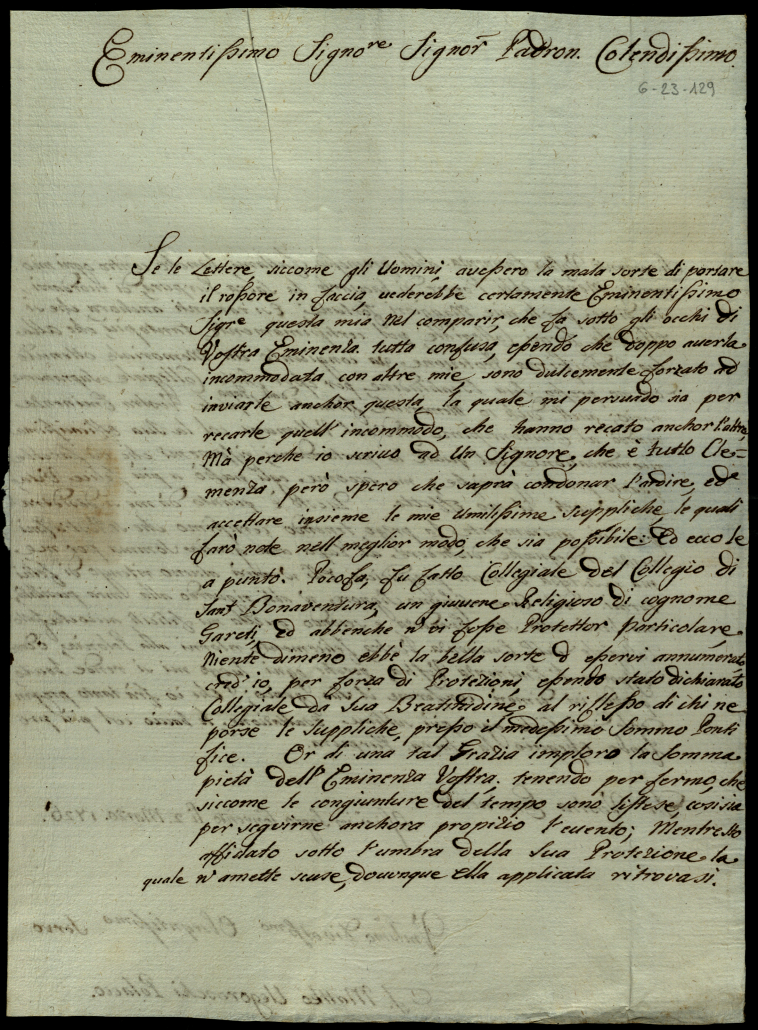 Eminentissimo Signore Signor Padron. Colendissimo.
6-23-129
Se le Lettere, siccome gli Uomini, avessero la mala sorte di portare
il rossore in faccia, vederebbe certamente Eminentissimo
Sigre questa mia nel comparir, che fa sotto gli occhi di
Vostra Eminenza tutta confusa, essendo che doppo averla
incommodata con altre mie, sono dulcemente forzato ad
inviarle anchor questa, la quale mi persuado sia per
recarle quell' incommodo, che hanno recato anchor l'altre,
Mà perche io scrivo ad Un Signore, che è tutto Cle=
menza però spero che saprà condonar l'ardire, ed
accettare insieme le mie umilissime suppliche, le quali
farò note nell meglior modo, che sia possibile: Ed ecco le
a puntò. Pocofa, fu fatto Collegiale del Collegio di
Sant Bonaventura, un giuvene Religioso di cognome
Gareti, Ed abbenche n vi fosse Protettor Particolare,
Niente dimeno ebbe la bella sorte d esservi annumerato
cred' io, per forza di Protezioni, essendo stato dichiarato
Collegiale da Sua Beatitudine al riflesso di chi ne
porse le suppliche, presso il medessimo Sommo Ponti
fice. Or di una tal Grazia imploro la somma
pietà dell' Eminenza Vostra, tenendo per fermo, che
siccome le congiunture del tempo sono l'istese, cosi sia
per seguirne anchora propizio l'evento; Mentre sto
affidato sotto l'umbra della Sua Protezione la
quale n amette scuse, dovunque Ella applicata ritrovasi.